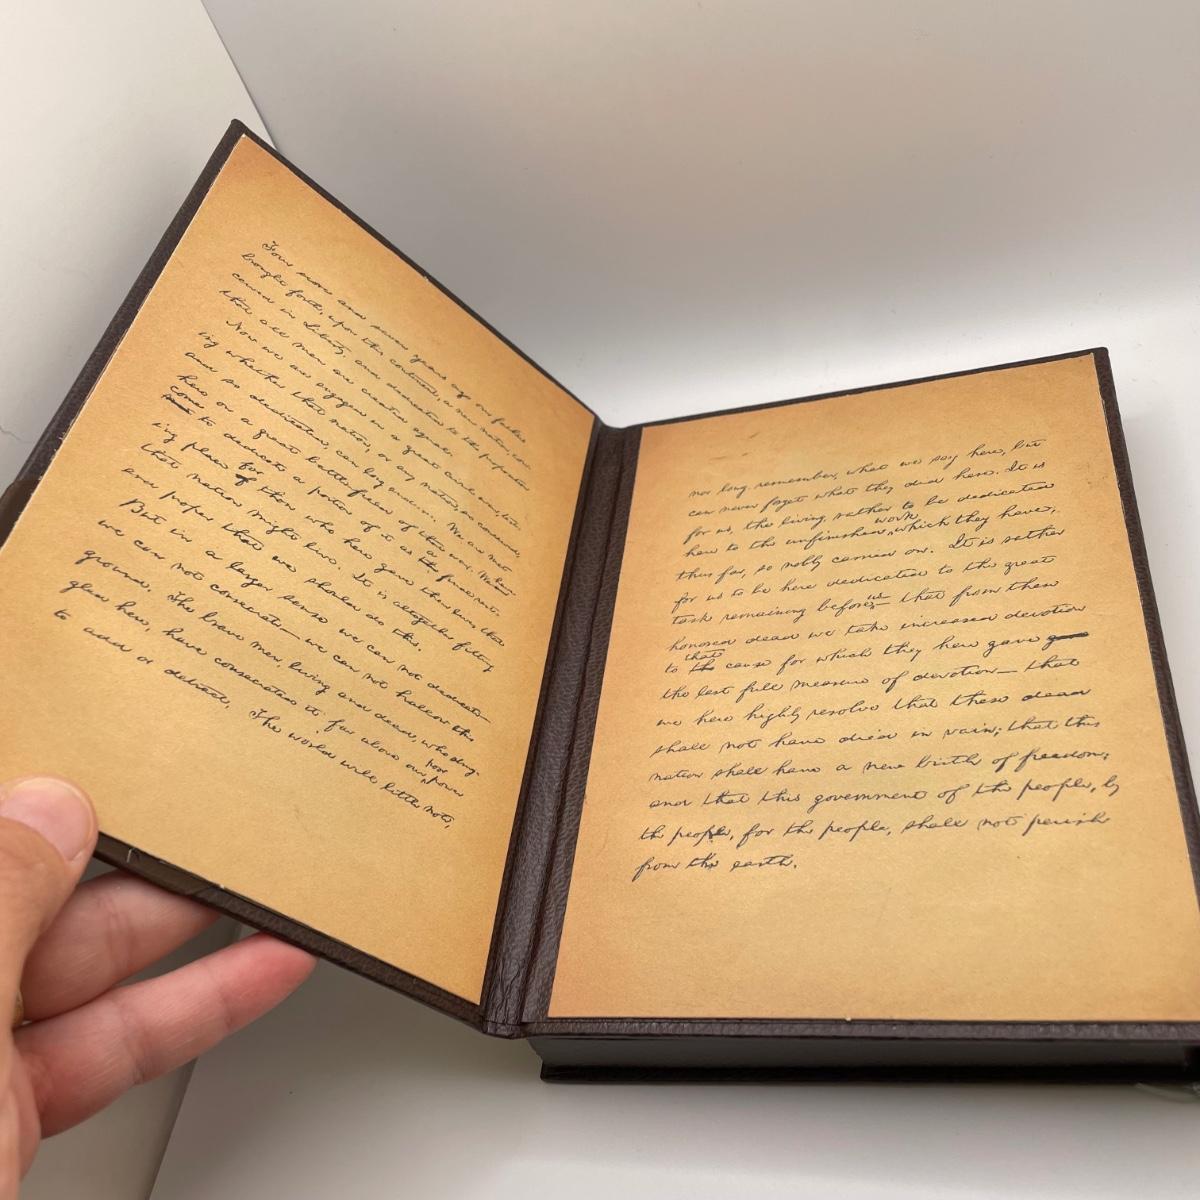 Four score and seven years ago our fathers
brought forth, upon this continent, a new nation, con-
ceived in Liberty, and dedicated to the proposition
that all men are created equal.
Now we are engaged in a great civil war, test-
ing whether that nation, or any nation, so conceived,
and so dedicated, can long endure. We are met
here on a great battle field of that war. We have
come to dedicate a portion of it as the final rest-
ing place of those who here gave their lives that
that nation might live. It is altogether fitting
and proper that we should do this.
But in a larger sense we can not dedicate—
we can not consecrate—we can not hallow this
ground. The brave men, living and dead, who strug-
gled here, have consecrated it far above our poor power
to add or detract. The world will little note,
nor long remember, what we say here, but
can never forget what they did here. It is
for us, the living, rather to be dedicated
here to the unfinished work which they have,
thus far, so nobly carried on. It is rather
for us to be here dedicated to the great
task remaining before us— that from these
honored dead we take increased devotion
to that the cause for which they here gave gave
the last full measure of devotion— that
we here highly resolve that these dead
shall not have died in vain; that this
nation shall have a new birth of freedom;
and that this government of the people, by
the people, for the people, shall not perish
from the earth.